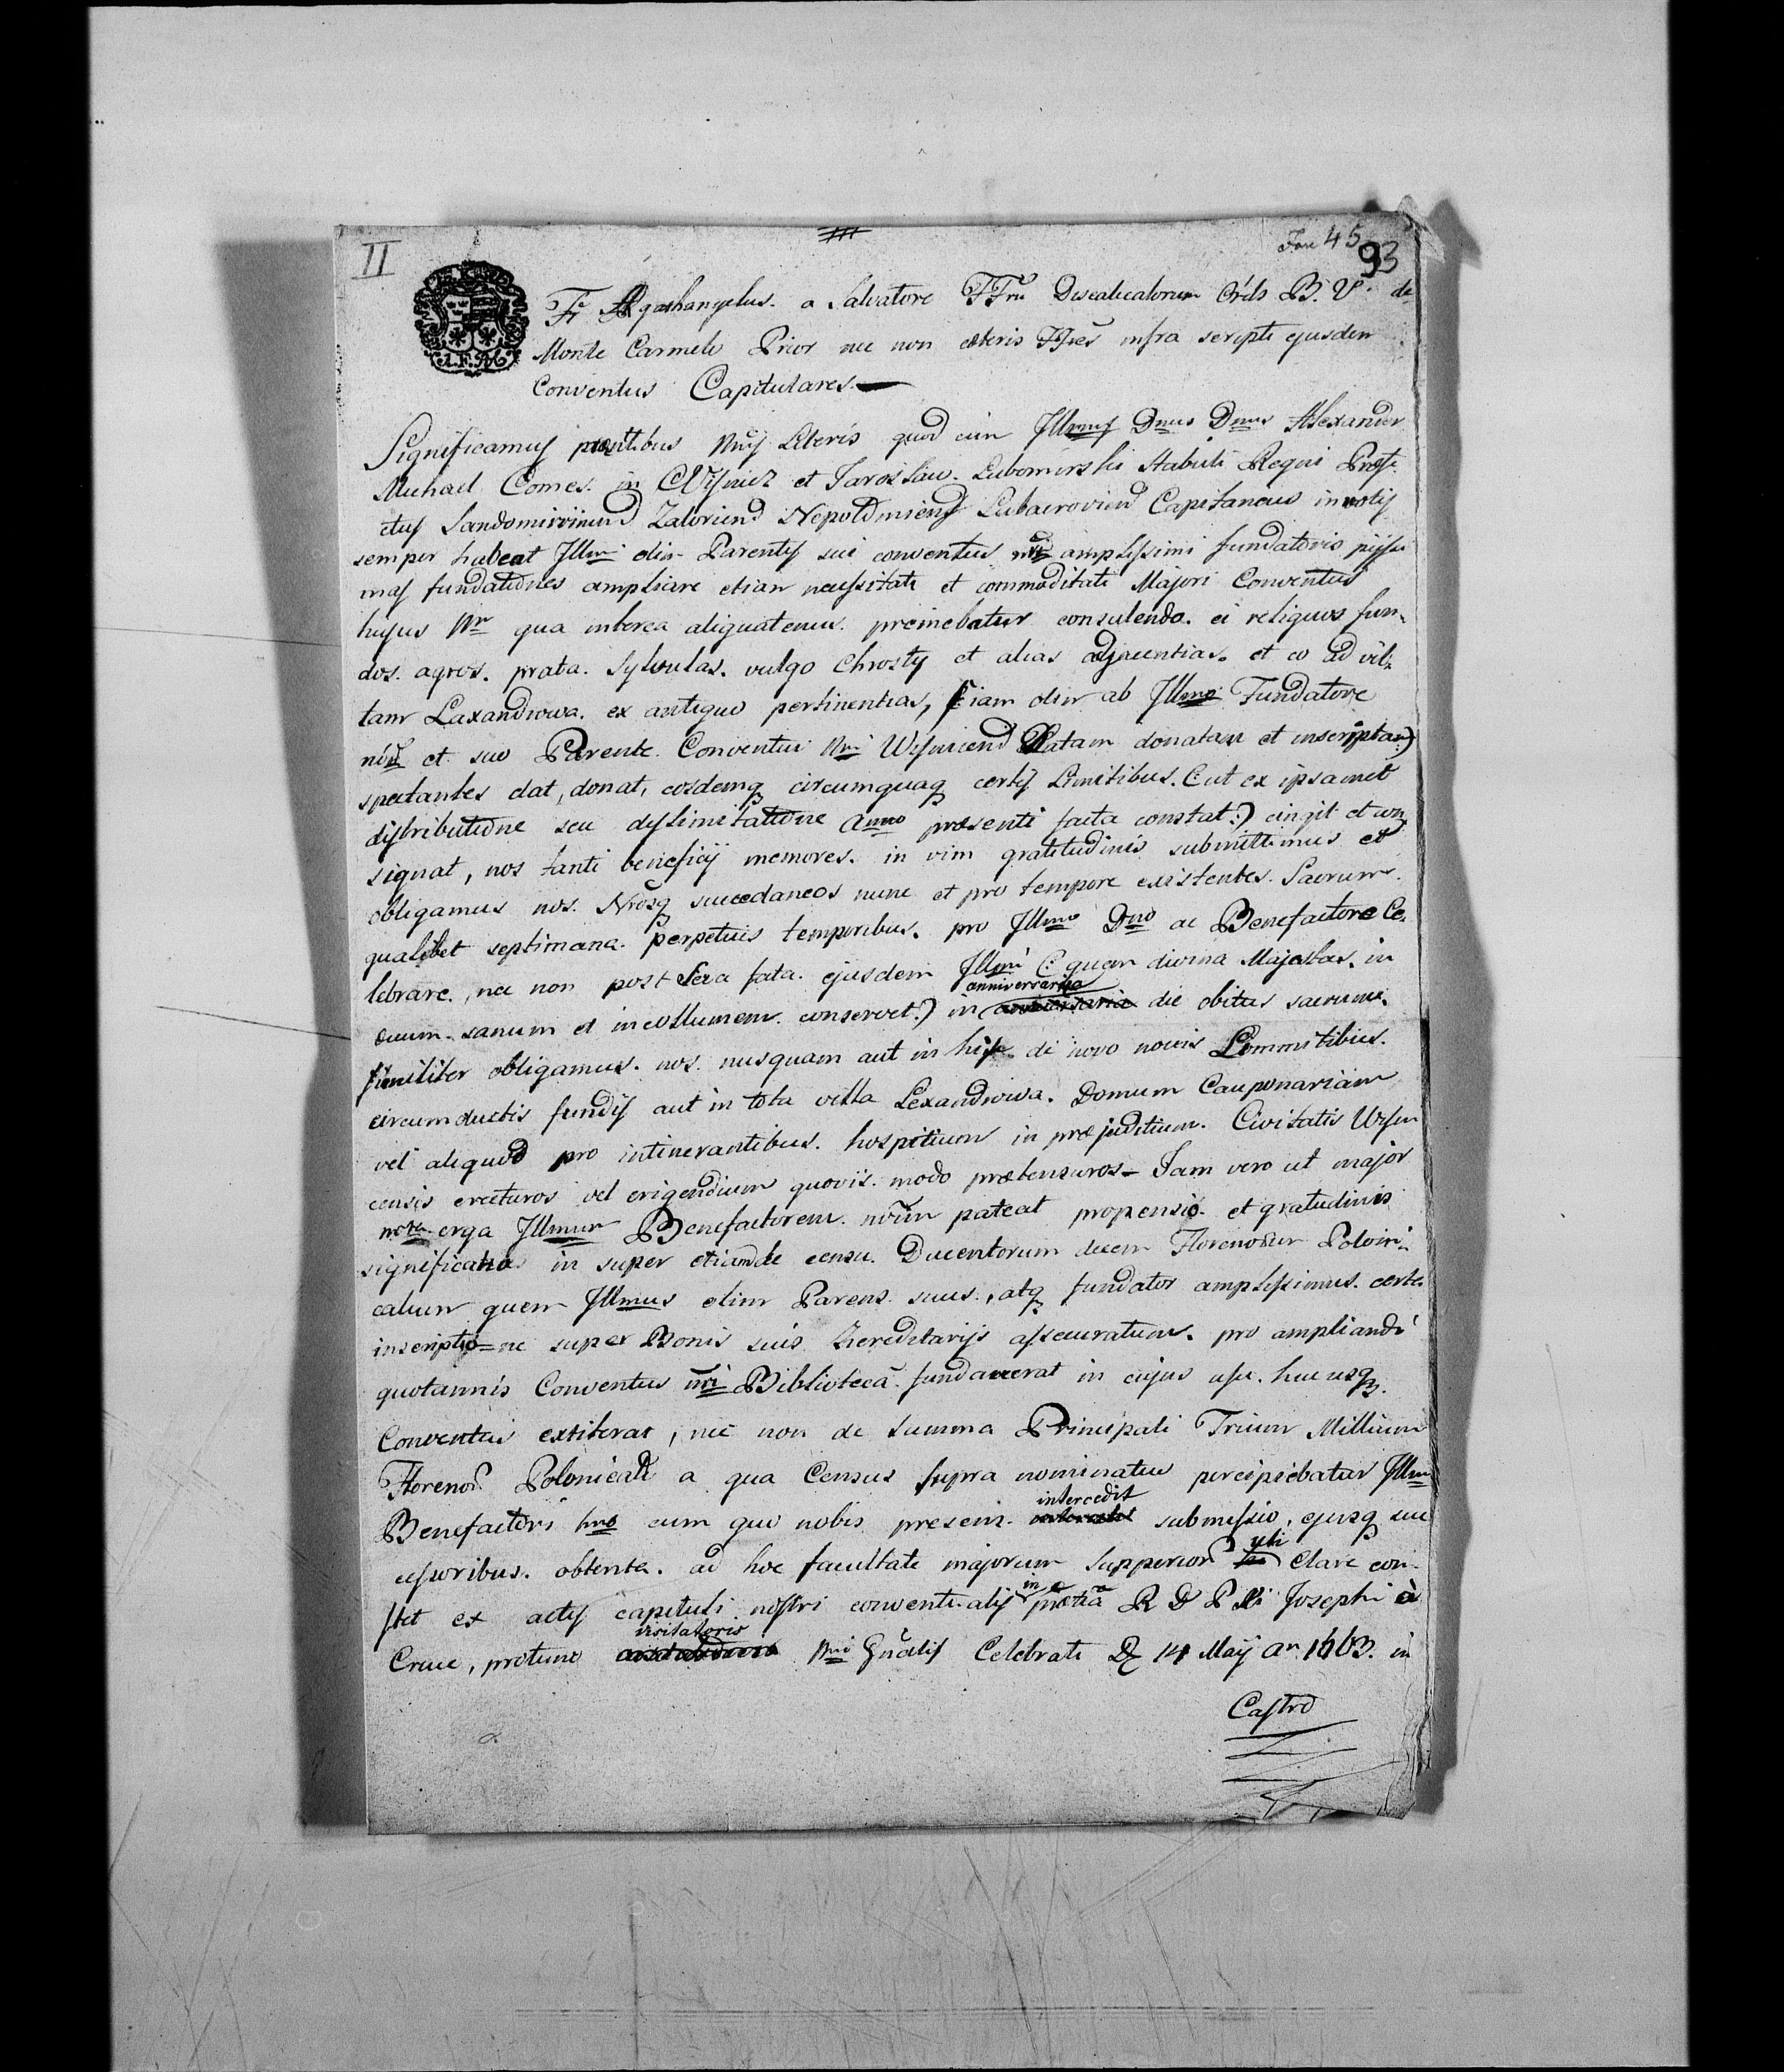 II
45
93
A.F.M.
Fr Agathangelus. a Salvatore FFrũ Discalceatorum Ordis B. V. de
Monte Carmelo Prior nec non ceteris FFres infra scripti ejusdem
Conventus Capitulares.
Significamus pntibus nris Literis quod cum Illmus Dnus Dnus Alexander
Michael Comes. in Wisnicz et Jaroslaw. Lubomirski Stabuli Regni Præfe.
ctus Sandomiriend Zatoriend Nepolomiend Lubacioviend Capitaneus in votis
semper habeat Illmi olim Parentis sui conventus nri amplissimi fundatoris piissi
mas fundationes ampliare etiam necessitati et commoditati Majori Conventus
hujus Nri qua interea aliquatenus. premebatur consulendo. ei reliquos fun-
dos. agros. prata. Sylvulas. vulgo Chrosty et alias adjacentias. et eo ad vil-
lam Laxandrowa. ex antiquo pertinentias, (iam olim ab Illmo Fundatore
nro et suo Parente Conventui Nri Wisniciend Datam donatam et inscriptam)
spectantes dat, donat, eosdemq circumquaq certis Limitibus. (:ut ex ipsamet
distributione seu dislimitatione Anno præsenti facta constat:) cingit et con
signat, nos tanti beneficij memores. in vim gratitudinis submittimus et
obligamus nos. Nrosq succedaneos nunc et pro tempore existentes. Sacrum.
qualibet septimana. perpetuis temporibus. pro Illmo Dno ac Benefactore Ce.
lebrare., nec non post Sera fata. ejusdem Illmi (:quem divina Majestas. in
anniversaria
ævum. sanum et incollumem. conservet:) in die obitus sacrum.
similiter obligamus. nos. nusquam aut in hisce de novo novis Limmitibus.
circumductis fundis aut in tota villa Lexandrowa. Domum Cauponariam
vel aliquod pro intinerantibus. hospitium in præjuditium. Civitatis Wisni
censis erecturos vel erigendium quovis. modo prætensuros – Jam vero ut major
nora erga Illmum Benefactorem. nrũm pateat propensio. et gratudinis
significatio in super etiam de censu. Ducentorum decem Florenorum Poloni-
calium quem Illmus olim Parens suus., atq fundator amplissimus. certa
inscriptio=ne super Bonis suis Hereditarijs assecuratum. pro ampliandi
quotannis Conventus nri Bibliotecã fundaverat in cujus usu. huc usq
Conventus extiterat, nec non de Summa Principali Trium Millium
Florenor Polonicali a qua Census supra nominatus percipiebatur Illmo
intercedit
Benefactori nro cum quo nobis presens. submissio, ejusq suc
uti
cessoribus. obtenta. ad hoc facultate majorum Supperior clare con-
in
stet ex actis capituli nostri conventi alis prætia R D P Ni Josephi à
visitatoris
Cruce, protunc Nri Gnalis Celebrati D 14 Maij An 1663. in
Castro